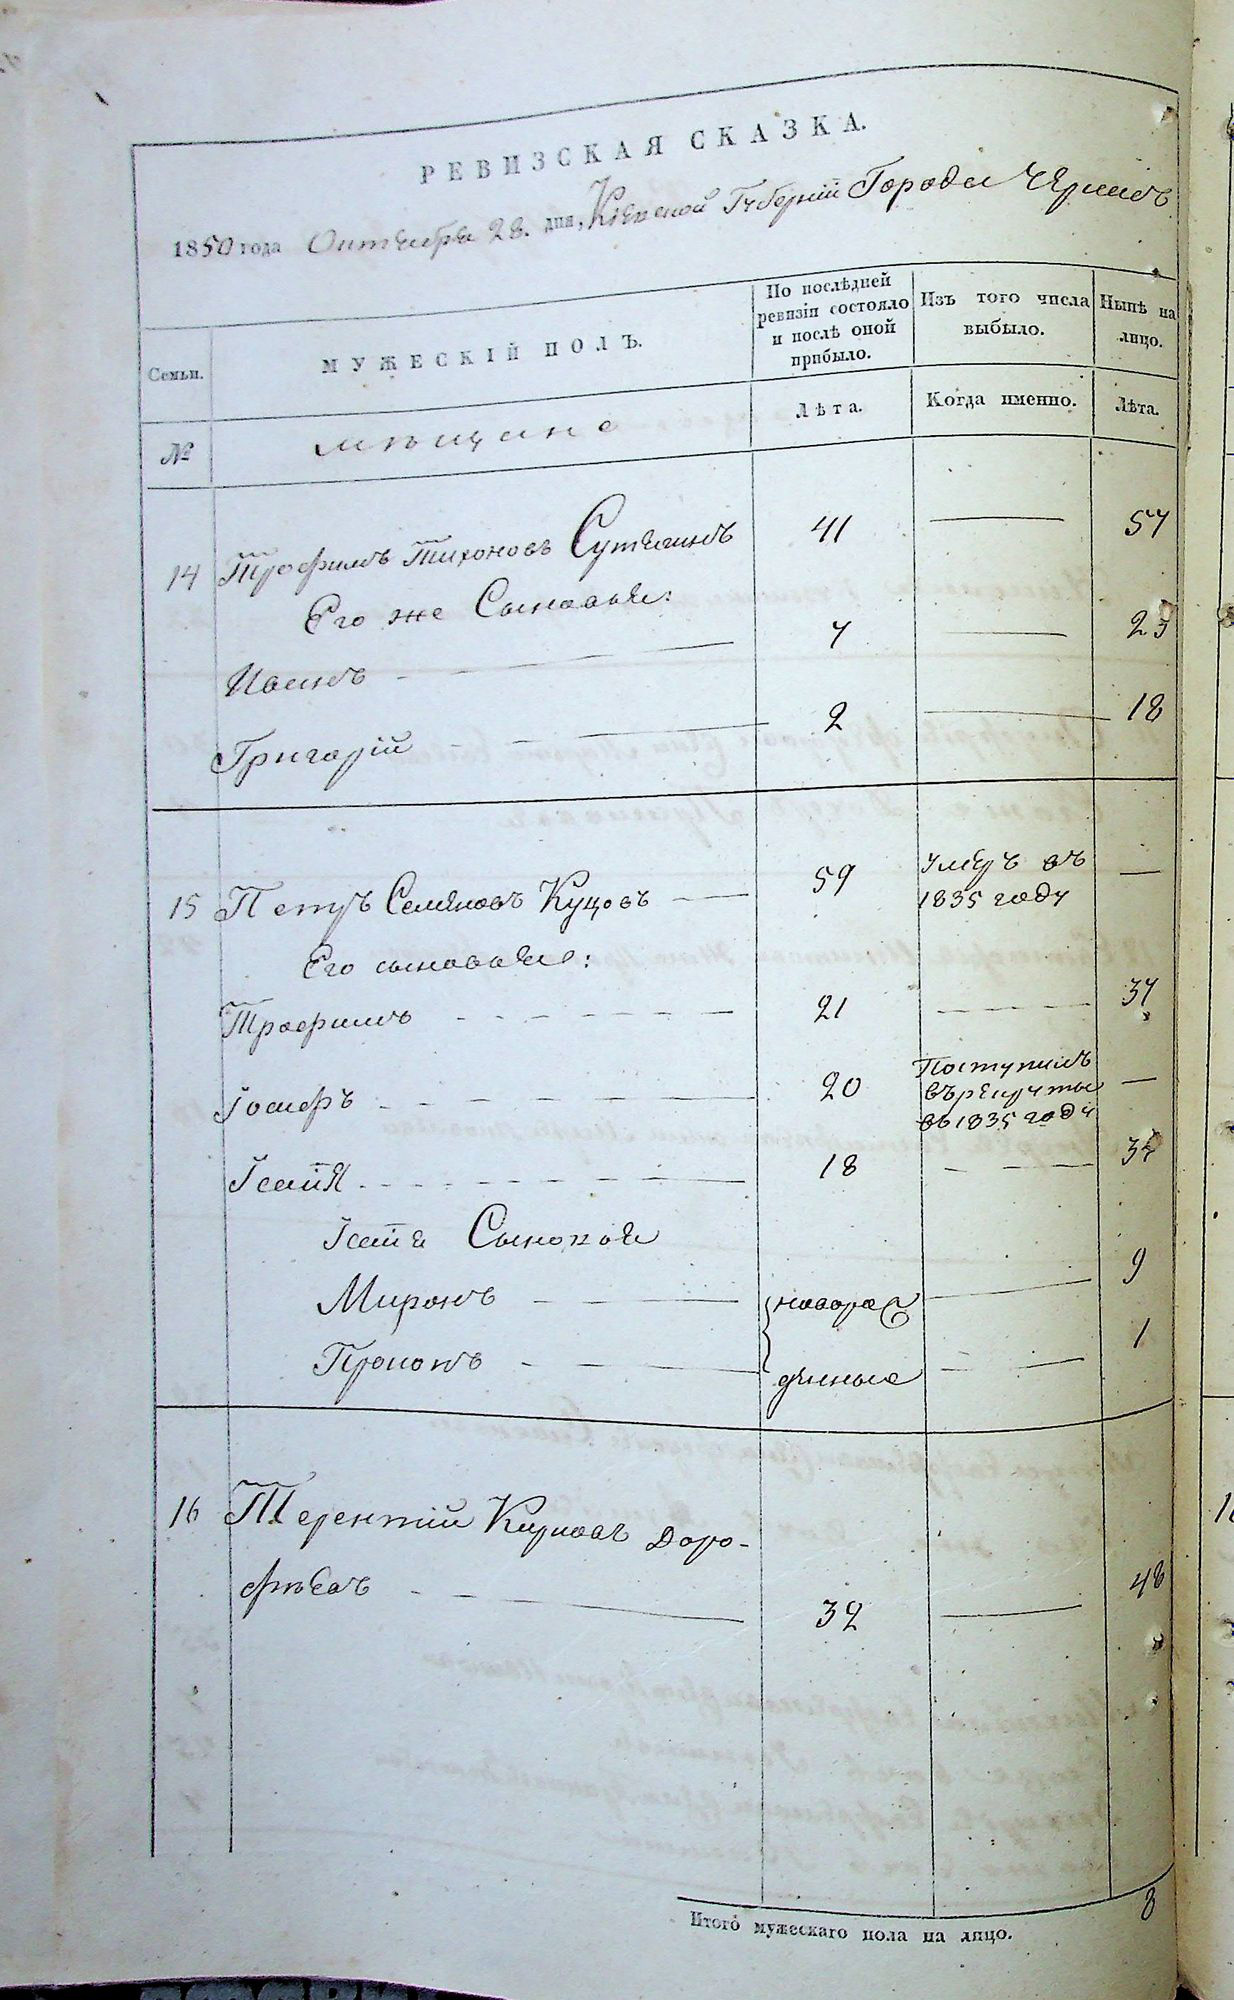 РЕВИЗСКАЯ СКАЗКА.
1850 года Октября 28. дня, Кіевской Губерніи Города
Семьи.
МУЖЕСКІЙ ПОЛЪ.
По послѣдней
ревизіи состояло
и послѣ оной
прибыло.
Изъ того числа
выбыло.
Нынѣ на
лицо.
Лѣта.
Когда именно.
Лѣта.
№
мѣщане
14 Трофимъ Тихоновъ 41 — 57
Его же Сыновья:
Иванъ — 7 — 23
Григорій — 2 — 18
15 Петръ Семеновъ Куцовъ — 59 Умеръ въ —
1835 году
Его сыновья:
Трофимъ — 21 — 37
Іосифъ — 20 Поступилъ —
въ рекруты
въ 1835 году
Ісаія — 18 — 34
Ісаія Сыновья
Миронъ — новорож — 9
Прокопъ — денные — 1
16 Терентій Карповъ Доро-
фѣевъ — 32 — 48
Итого мужескаго пола на лицо. 8